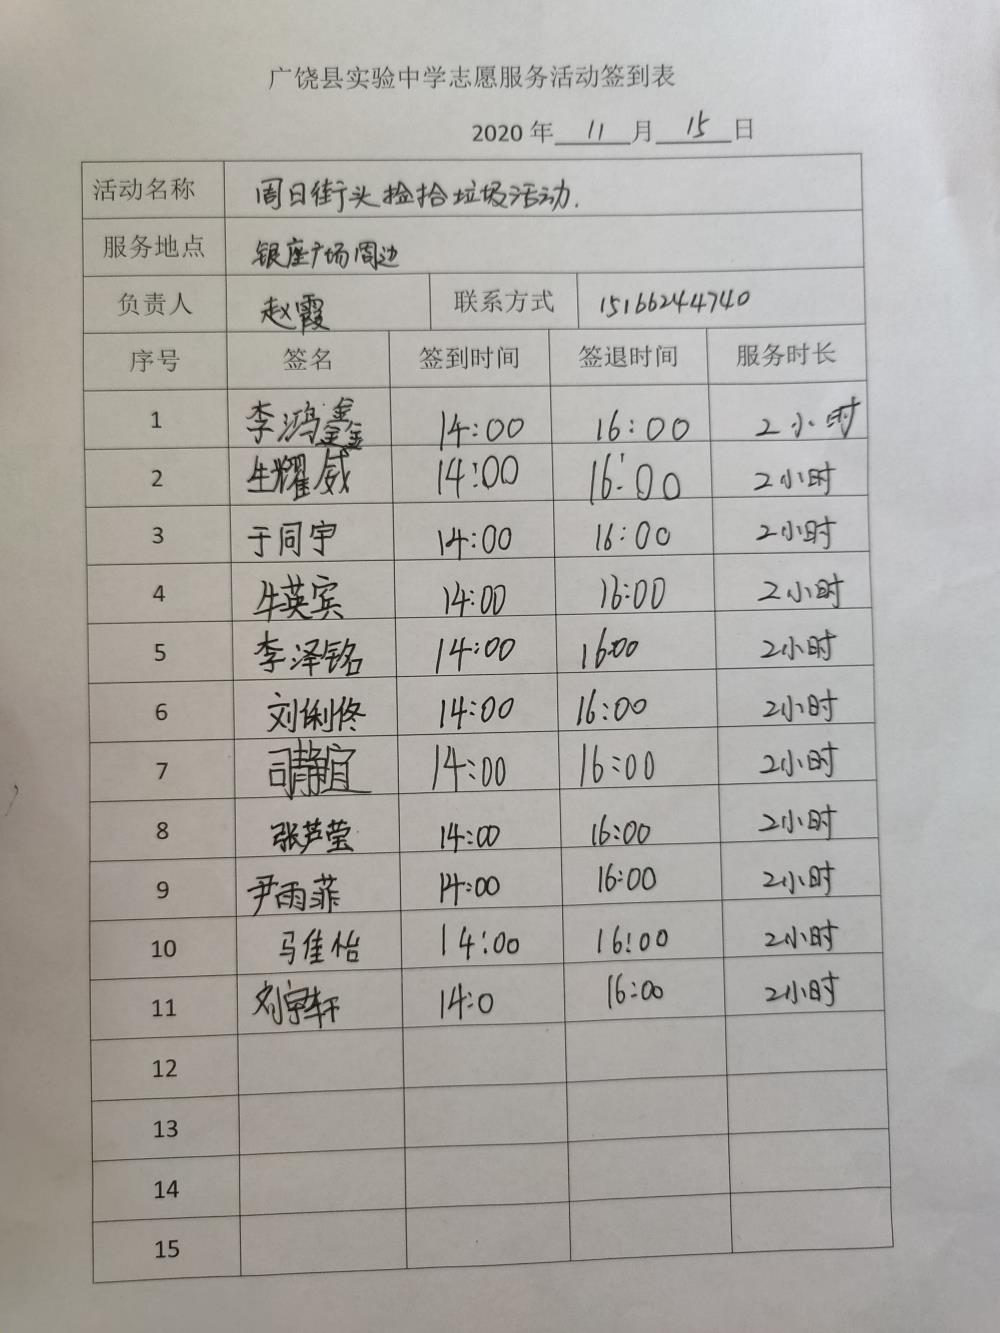 广饶县实验中学志愿服务活动签到表
2020 年 11 月 15 日
活动名称 周日街头捡拾垃圾活动.
服务地点 银座广场周边
负责人 赵霞 联系方式 15166244740
序号 签名 签到时间 签退时间 服务时长
1 李鸿鑫 14:00 16:00 2小时
2 生耀威 14:00 16:00 2小时
3 于同宇 14:00 16:00 2小时
4 牛英宾 14:00 16:00 2小时
5 李泽铭 14:00 16:00 2小时
6 刘俐佟 14:00 16:00 2小时
7 司静宜 14:00 16:00 2小时
8 张芦莹 14:00 16:00 2小时
9 尹雨菲 14:00 16:00 2小时
10 马佳怡 14:00 16:00 2小时
11 刘宇轩 14:0 16:00 2小时
12
13
14
15